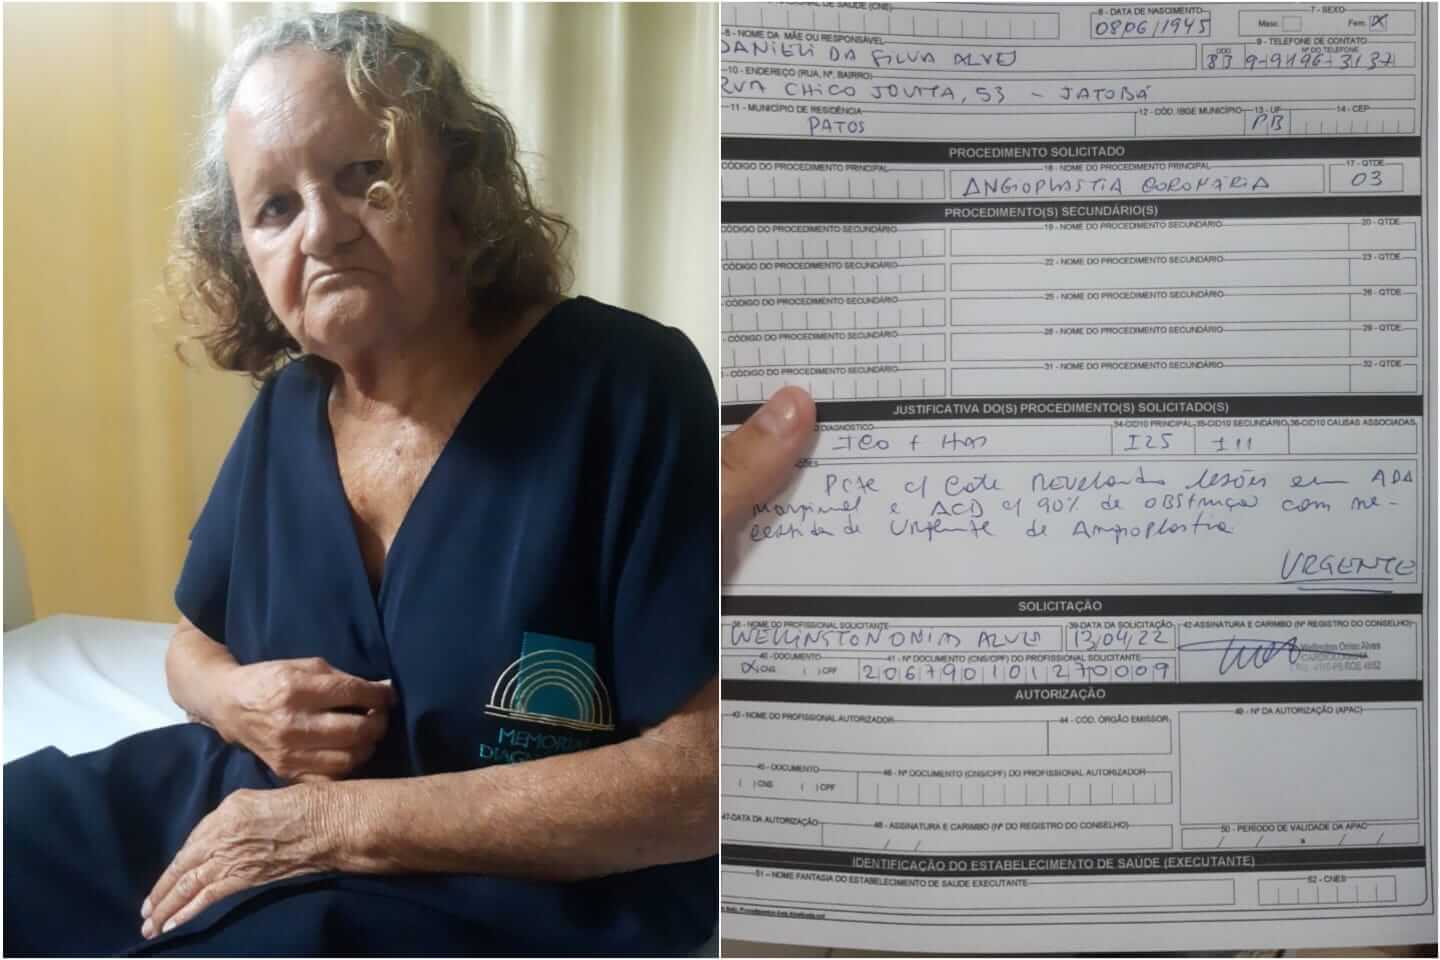 MEMORIAL
NAL DE SAÚDE (CNS)
6 - DATA DE NASCIMENTO
08/06/1945
7 - SEXO
Masc.
Fem. X
8 - NOME DA MÃE OU RESPONSÁVEL
DANIELI DA SILVA ALVES
9 - TELEFONE DE CONTATO
DDD
Nº DO TELEFONE
83 9-9196-3137
10 - ENDEREÇO (RUA, Nº, BAIRRO)
RUA CHICO JOVITA, 53 - JATOBÁ
11 - MUNICÍPIO DE RESIDÊNCIA
PATOS
12 - CÓD. IBGE MUNICÍPIO
13 - UF
PB
14 - CEP
PROCEDIMENTO SOLICITADO
CÓDIGO DO PROCEDIMENTO PRINCIPAL
16 - NOME DO PROCEDIMENTO PRINCIPAL
ANGIOPLASTIA CORONÁRIA
17 - QTDE
03
PROCEDIMENTO(S) SECUNDÁRIO(S)
CÓDIGO DO PROCEDIMENTO SECUNDÁRIO
19 - NOME DO PROCEDIMENTO SECUNDÁRIO
20 - QTDE
CÓDIGO DO PROCEDIMENTO SECUNDÁRIO
22 - NOME DO PROCEDIMENTO SECUNDÁRIO
23 - QTDE
CÓDIGO DO PROCEDIMENTO SECUNDÁRIO
25 - NOME DO PROCEDIMENTO SECUNDÁRIO
26 - QTDE
- CÓDIGO DO PROCEDIMENTO SECUNDÁRIO
28 - NOME DO PROCEDIMENTO SECUNDÁRIO
29 - QTDE
- CÓDIGO DO PROCEDIMENTO SECUNDÁRIO
31 - NOME DO PROCEDIMENTO SECUNDÁRIO
32 - QTDE
JUSTIFICATIVA DO(S) PROCEDIMENTO(S) SOLICITADO(S)
DO DIAGNÓSTICO
ICO + HAS
34-CID10 PRINCIPAL
I25
35-CID10 SECUNDÁRIO
I11
36-CID10 CAUSAS ASSOCIADAS
Pcte c/ Cate Revelando lesões em ADA
Marginal e ACD c/ 90% de obstrução com ne-
cessidade Urgente de Angioplastia
URGENTE
SOLICITAÇÃO
38 - NOME DO PROFISSIONAL SOLICITANTE
WELLINGTON ONIAS ALVES
39-DATA DA SOLICITAÇÃO
13/04/22
42-ASSINATURA E CARIMBO (Nº REGISTRO DO CONSELHO)
Wellington Onias Alves
40 - DOCUMENTO
(X) CNS ( ) CPF
41 - Nº DOCUMENTO (CNS/CPF) DO PROFISSIONAL SOLICITANTE
206790101270009
AUTORIZAÇÃO
43 - NOME DO PROFISSIONAL AUTORIZADOR
44 - CÓD. ÓRGÃO EMISSOR
49 - Nº DA AUTORIZAÇÃO (APAC)
45 - DOCUMENTO
( ) CNS ( ) CPF
46 - Nº DOCUMENTO (CNS/CPF) DO PROFISSIONAL AUTORIZADOR
47-DATA DA AUTORIZAÇÃO
48 - ASSINATURA E CARIMBO (Nº DO REGISTRO DO CONSELHO)
50 - PERÍODO DE VALIDADE DA APAC
/ / a / /
IDENTIFICAÇÃO DO ESTABELECIMENTO DE SAÚDE (EXECUTANTE)
51 - NOME FANTASIA DO ESTABELECIMENTO DE SAÚDE EXECUTANTE
52 - CNES